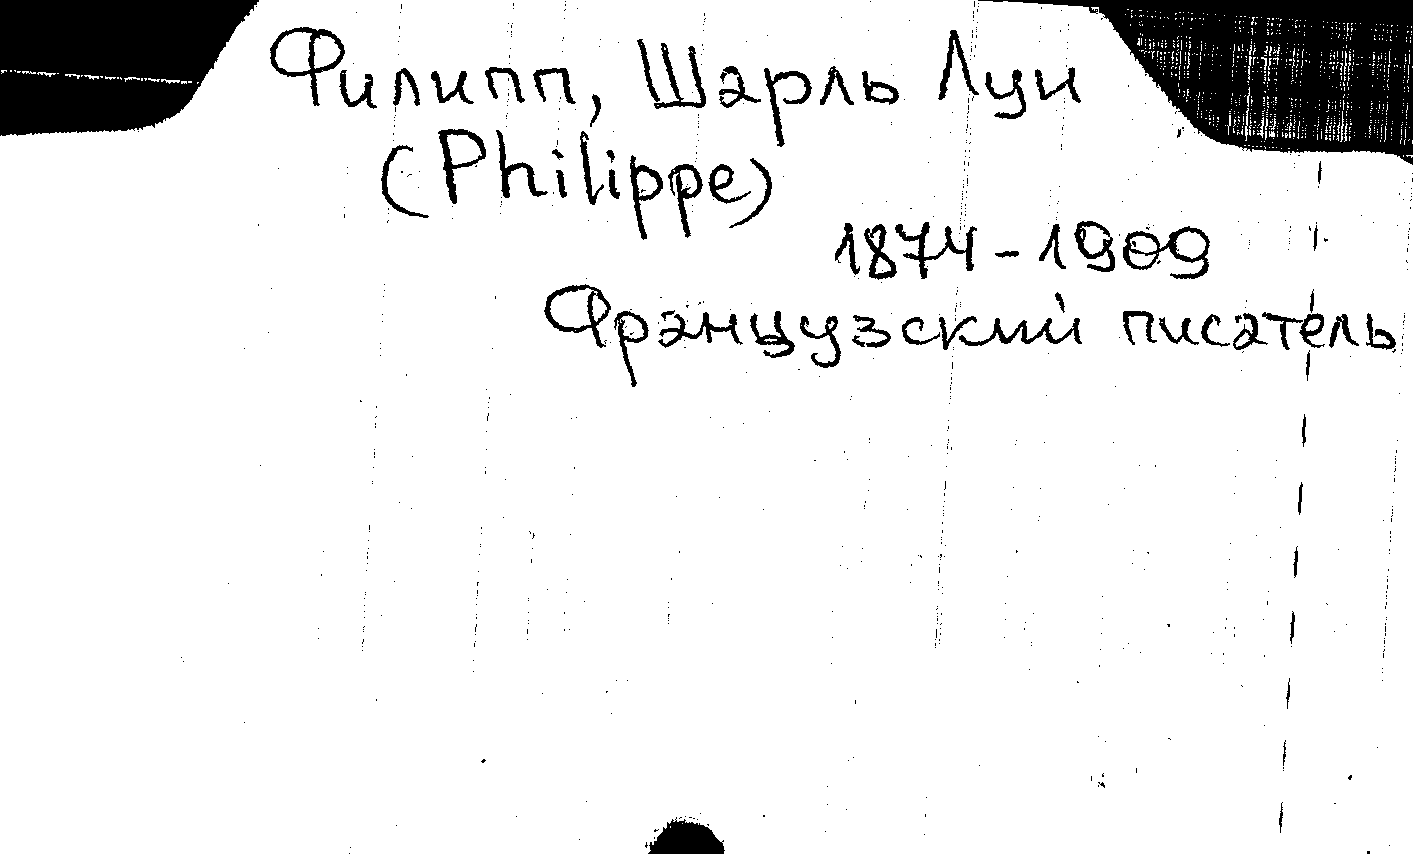 Филипп, Шарль Луи
(Philippe)
1874-1909
Французский писатель